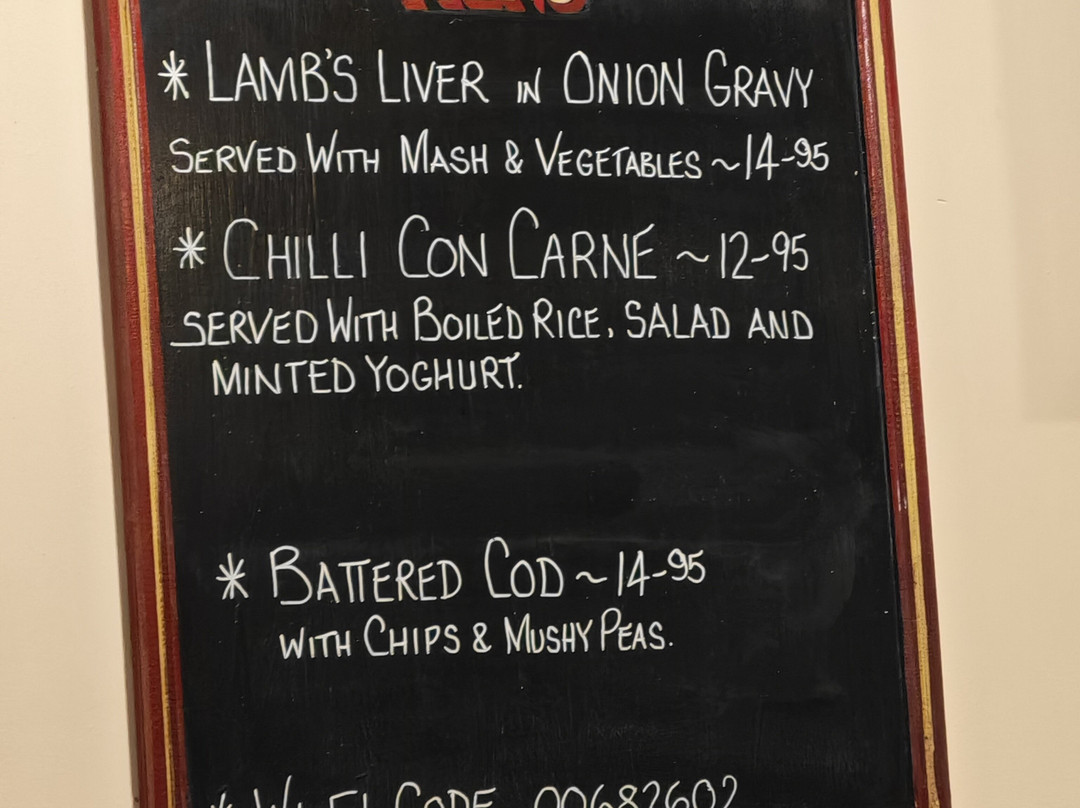 * LAMB'S LIVER IN ONION GRAVY
SERVED WITH MASH & VEGETABLES ~ 14-95
* CHILLI CON CARNE ~ 12-95
SERVED WITH BOILED RICE, SALAD AND
MINTED YOGHURT.
* BATTERED COD ~ 14-95
WITH CHIPS & MUSHY PEAS.
* WI-FI CODE 00682602